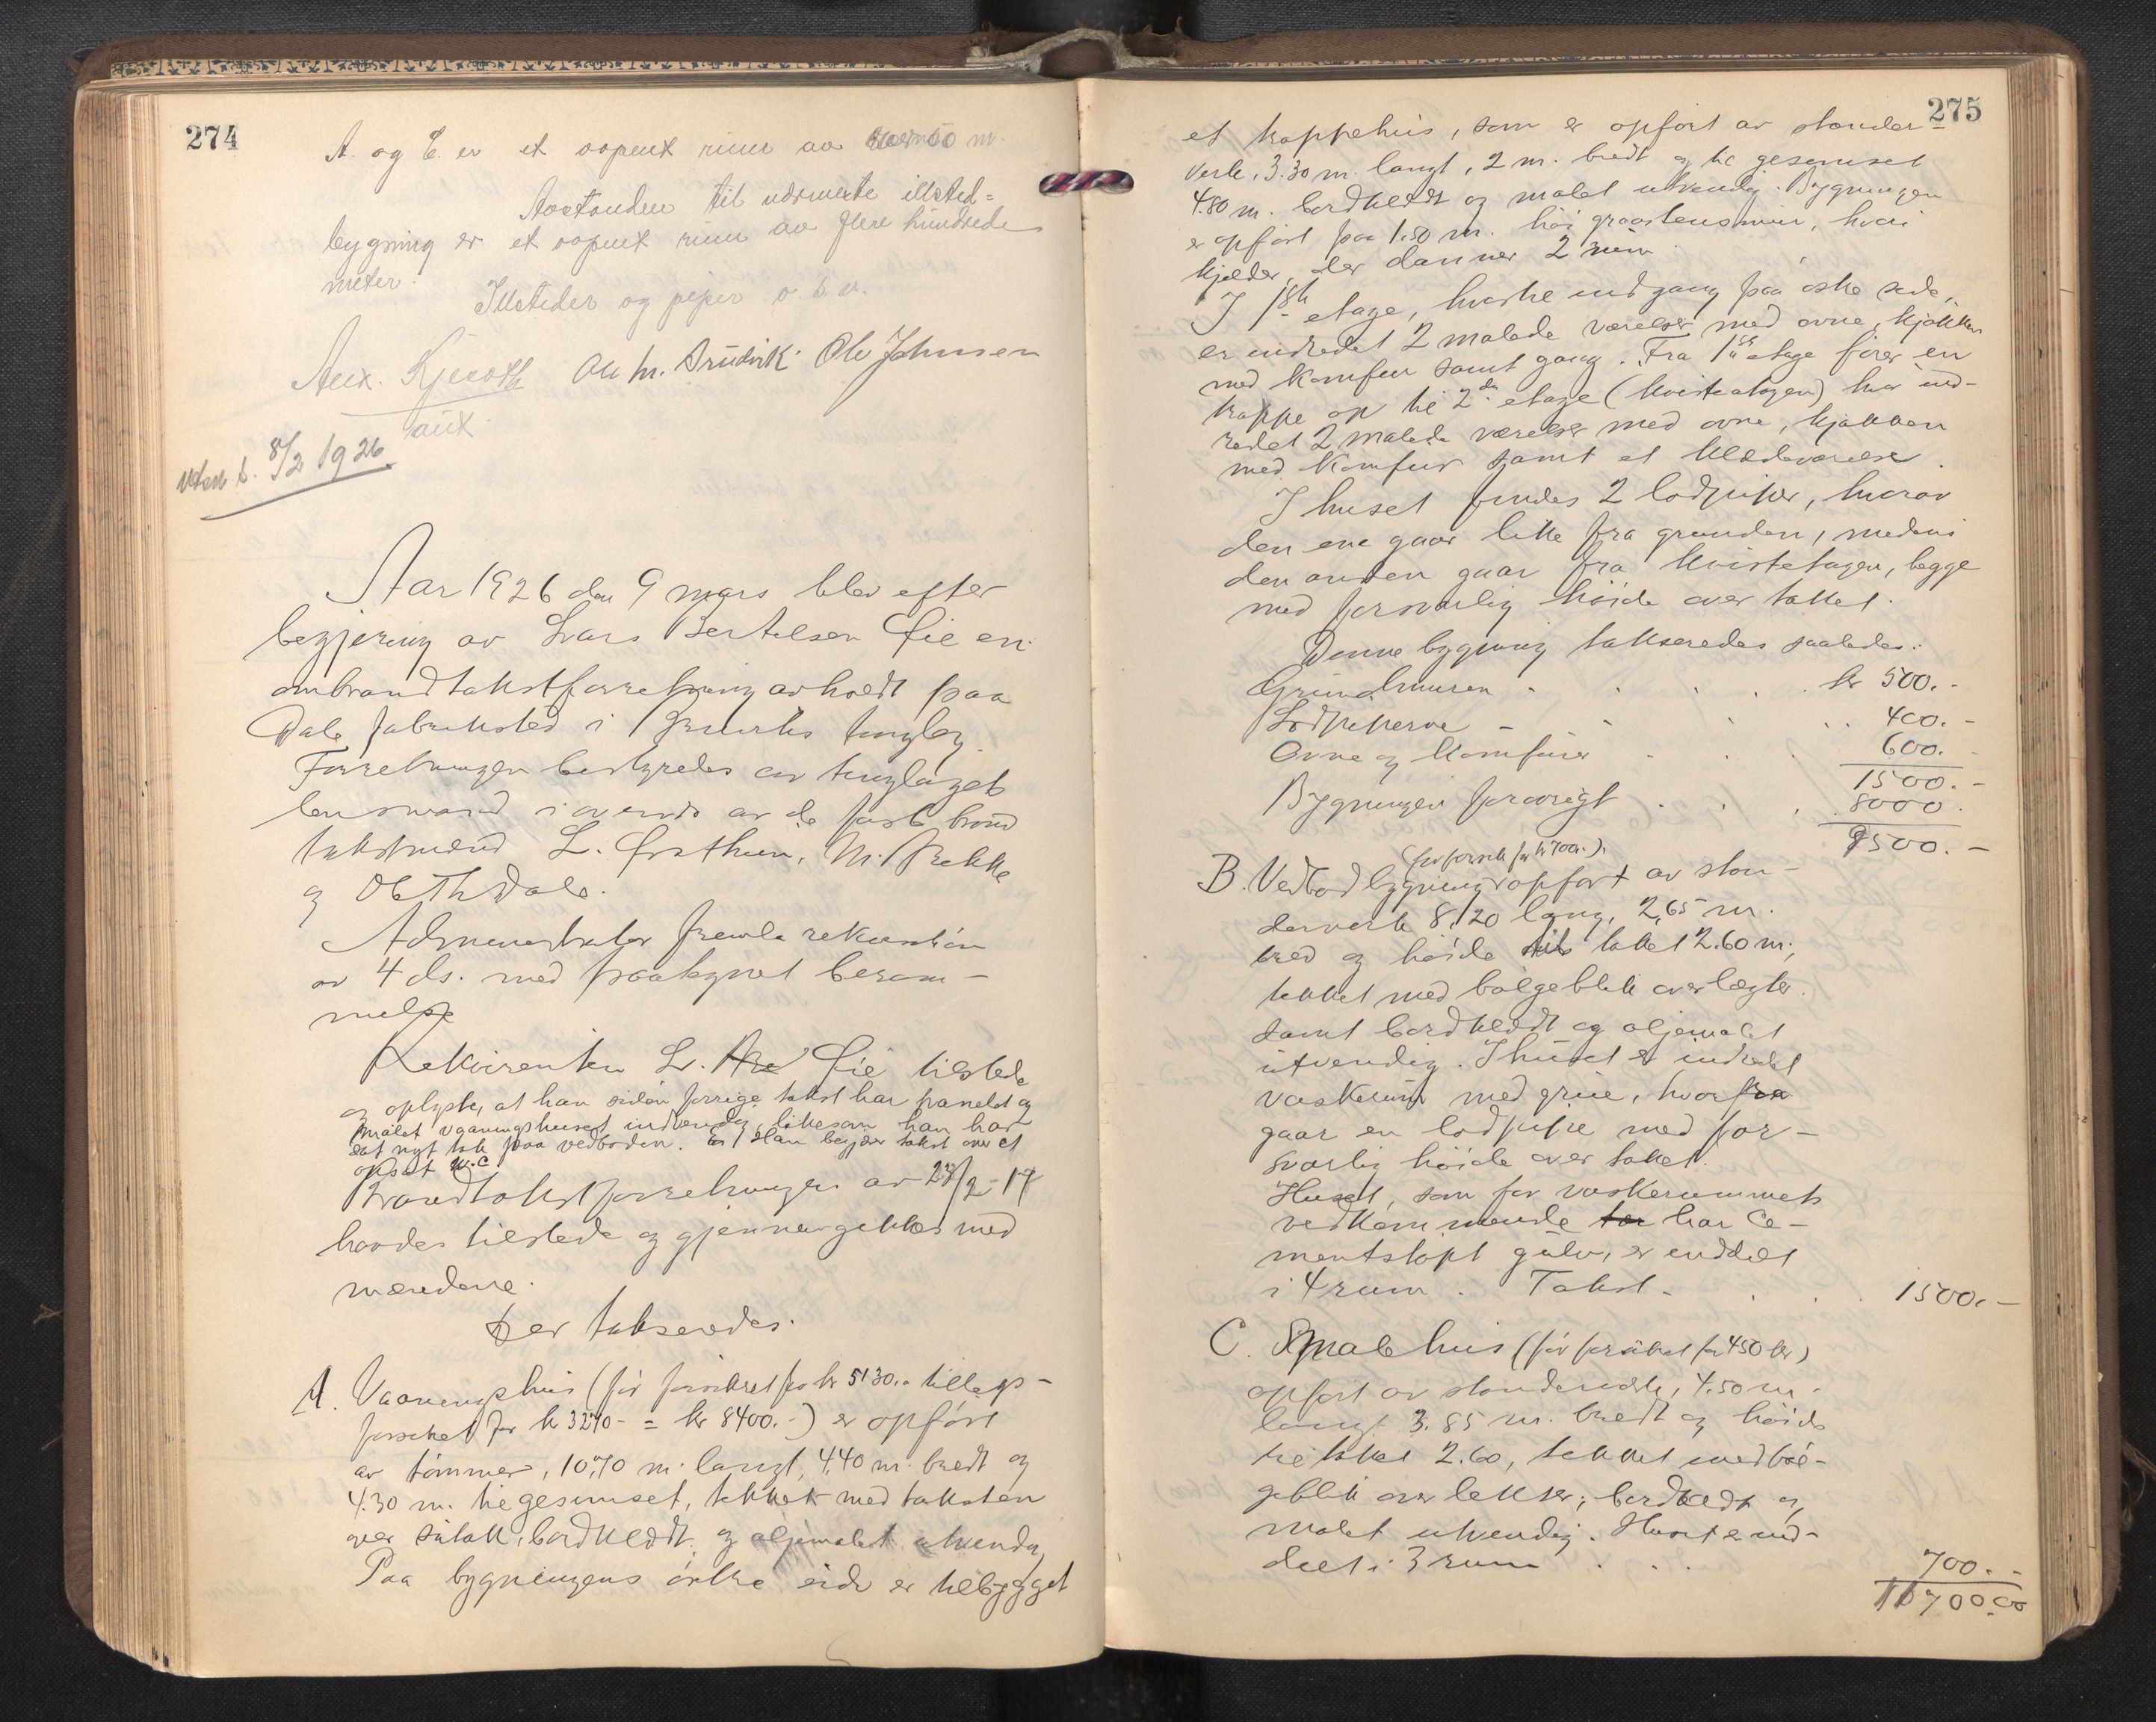 274
A. og C. er et aapent rum av m.
Avstanden til nærmeste illsted=
bygning er et aapent rum av flere hundrede
meter.
Illsteder og piper o. s. v.
Ole Johnsen
aut
8/2 1926
Aar 1926 den 9 mars blev efter
begjering av Lars Bertelsen Øie en
ombrandtakstforretning avholdt paa
Dale fabriksted i tinglag.
Forretningen bestyredes av tinglagets
lensmand i overvær av de faste brand
takstmænd L. M. Bekke
og Ol Th Dale.
Administrator fremla rekvisition
av 4 ds. med paategnet beram-
melse
Rekvirenten L. Øie tilstede
og oplyste, at han siden forrige takst har panelet og
malet vaaningshuset indvendig, likesom han har
sat nyt tak paa vedboden. Han begjær takst over et
opsat W.C
Brandtakstforretningen av 28/2-17
havdes tilstede og gjennemgikkes med
mændene.
Der takseredes:
A. Vaaningshus (før forsikret for kr 5130.- tillægs-
forsikret for kr 3270- = kr 8400.-) er opført
av tømmer, 10,70 m. langt, 4,40 m. bredt og
4.30 m. til gesimset, tekket med taksten
over sutak, bordklædt og oljemalet utvendig
Paa bygningens østre side er tilbygget
275
et trappehus, som er opført av stender-
verk, 3.30 m. langt, 2 m. bredt og til gesimset
4.80 m. bordklædt og malet utvendig. Bygningen
er opført paa 1.50 m. høi graastensmur, hvori
kjelder, der danner 2 rum.
I 1ste etage, hvortil indgang paa østre side,
er indredet 2 malede værelser med ovne, kjøkken
med komfur samt gang. Fra 1ste etage fører en
trappe op til 2den etage (kvistetagen) hvor ind-
redet 2 malede værelser med ovne, kjøkken
med komfur samt et klædeværelse.
I huset findes 2 lodpiper, hvorav
den ene gaar like fra grunden, medens
den anden gaar fra kvistetagen, begge
med forsvarlig høide over taket.
Denne bygning takseredes saaledes:
Grundmuren . . . . kr 500.-
Lodpiperne - . . . 400.-
Ovne og komfurer . . . 600.-
1500.-
Bygningen forøvrigt . . . 8000.
9500.-
(før forsik for kr 700.-)
B. Vedbod bygning opført av sten-
derverk 8,20 lang, 2,65 m.
bred og høide til taket 2.60 m,
tekket med bølgeblik over lægter.
samt bordklædt og oljemalet
utvendig. I huset er indredet
vaskerum med grue, hvorfra
gaar en lodpipe med for-
svarlig høide over taket.
Huset, som for vaskerummets
vedkommende har ce-
mentstøpt gulv, er inddelt
i 4 rum. Takst. . . . 1500.-
C. Smalehus (før forsikret for 450 kr)
opført av stenderverk, 4.50 m.
langt 3.85 m. bredt og høide
til taket 2.60, tekket med bøl-
geblik over lekter; bordklædt og
malet utvendig. Huset er ind-
delt i 3 rum . . . 700.-
11700.00